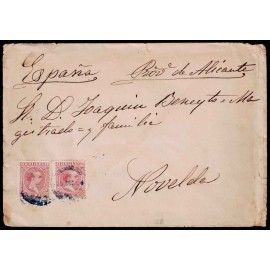 España Prov. de Alicante
Sr. D. Joaquin Beneyto = Ma
gistrado = y familia
Novelda